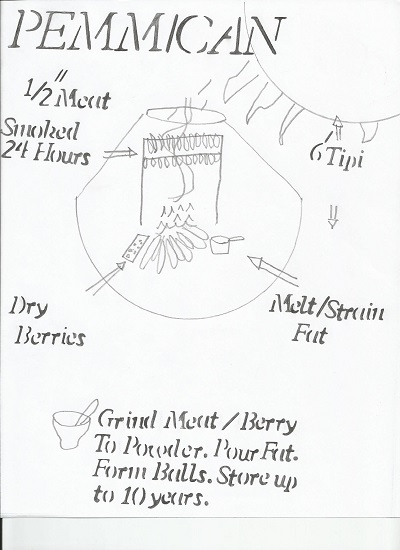 PEMMICAN
1/2" Meat
Smoked
24 Hours
6' Tipi
Dry
Berries
Melt/Strain
Fat
Grind Meat / Berry
To Powder. Pour Fat.
Form Balls. Store up
to 10 years.